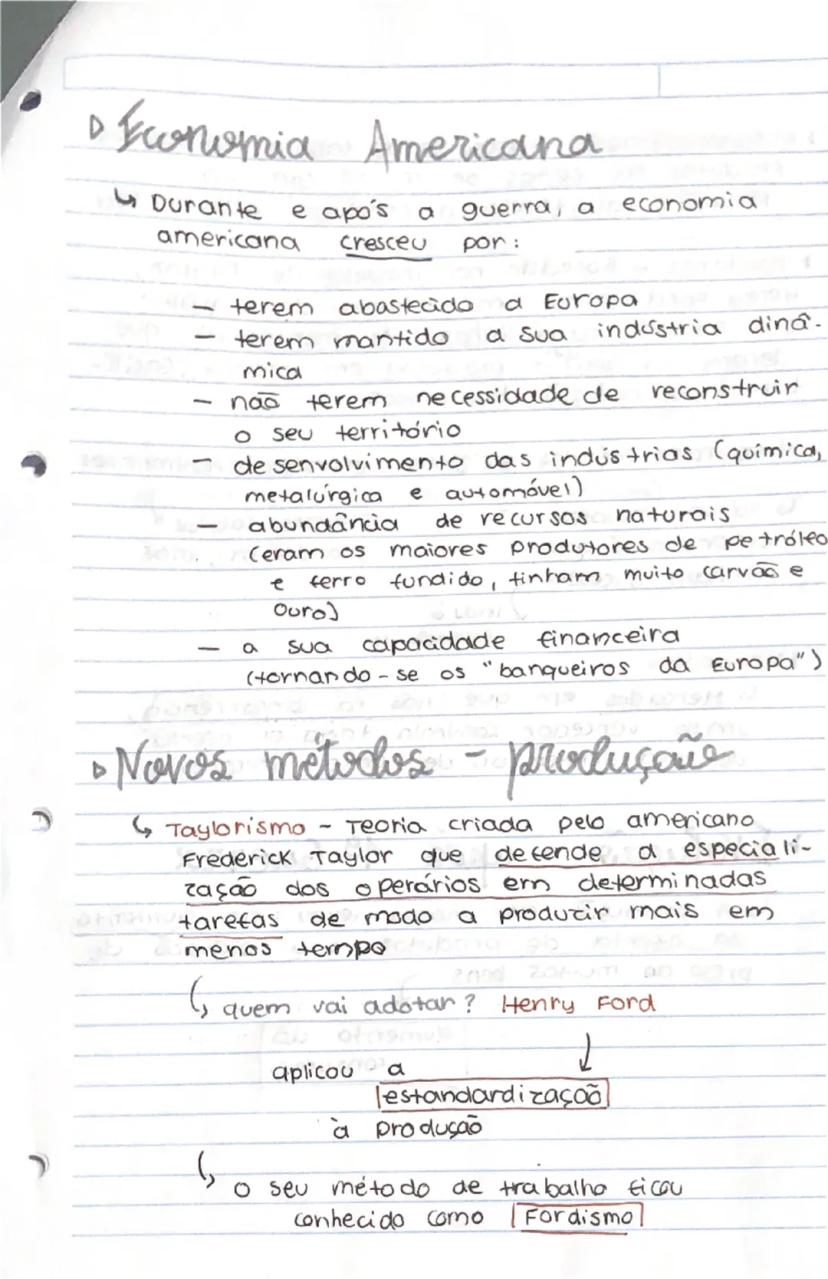 ▷ Economia Americana
↳ Durante e após a guerra, a economia
americana cresceu por:
- terem abastecido a Europa
- terem mantido a sua indústria dinâ-
mica
- não terem necessidade de reconstruir
o seu território
- desenvolvimento das indústrias (química,
metalúrgica e automóvel)
- abundância de recursos naturais
(eram os maiores produtores de petróleo
e ferro fundido, tinham muito carvão e
ouro)
- a sua capacidade financeira
(tornando-se os "banqueiros da Europa")
▷ Novos métodos - produção
↳ Taylorismo - Teoria criada pelo americano
Frederick Taylor que defende a especiali-
zação dos operários em determinadas
tarefas de modo a produzir mais em
menos tempo
↳ quem vai adotar? Henry Ford
↓
aplicou a
estandardização
à produção
↳ o seu método de trabalho ficou
conhecido como Fordismo